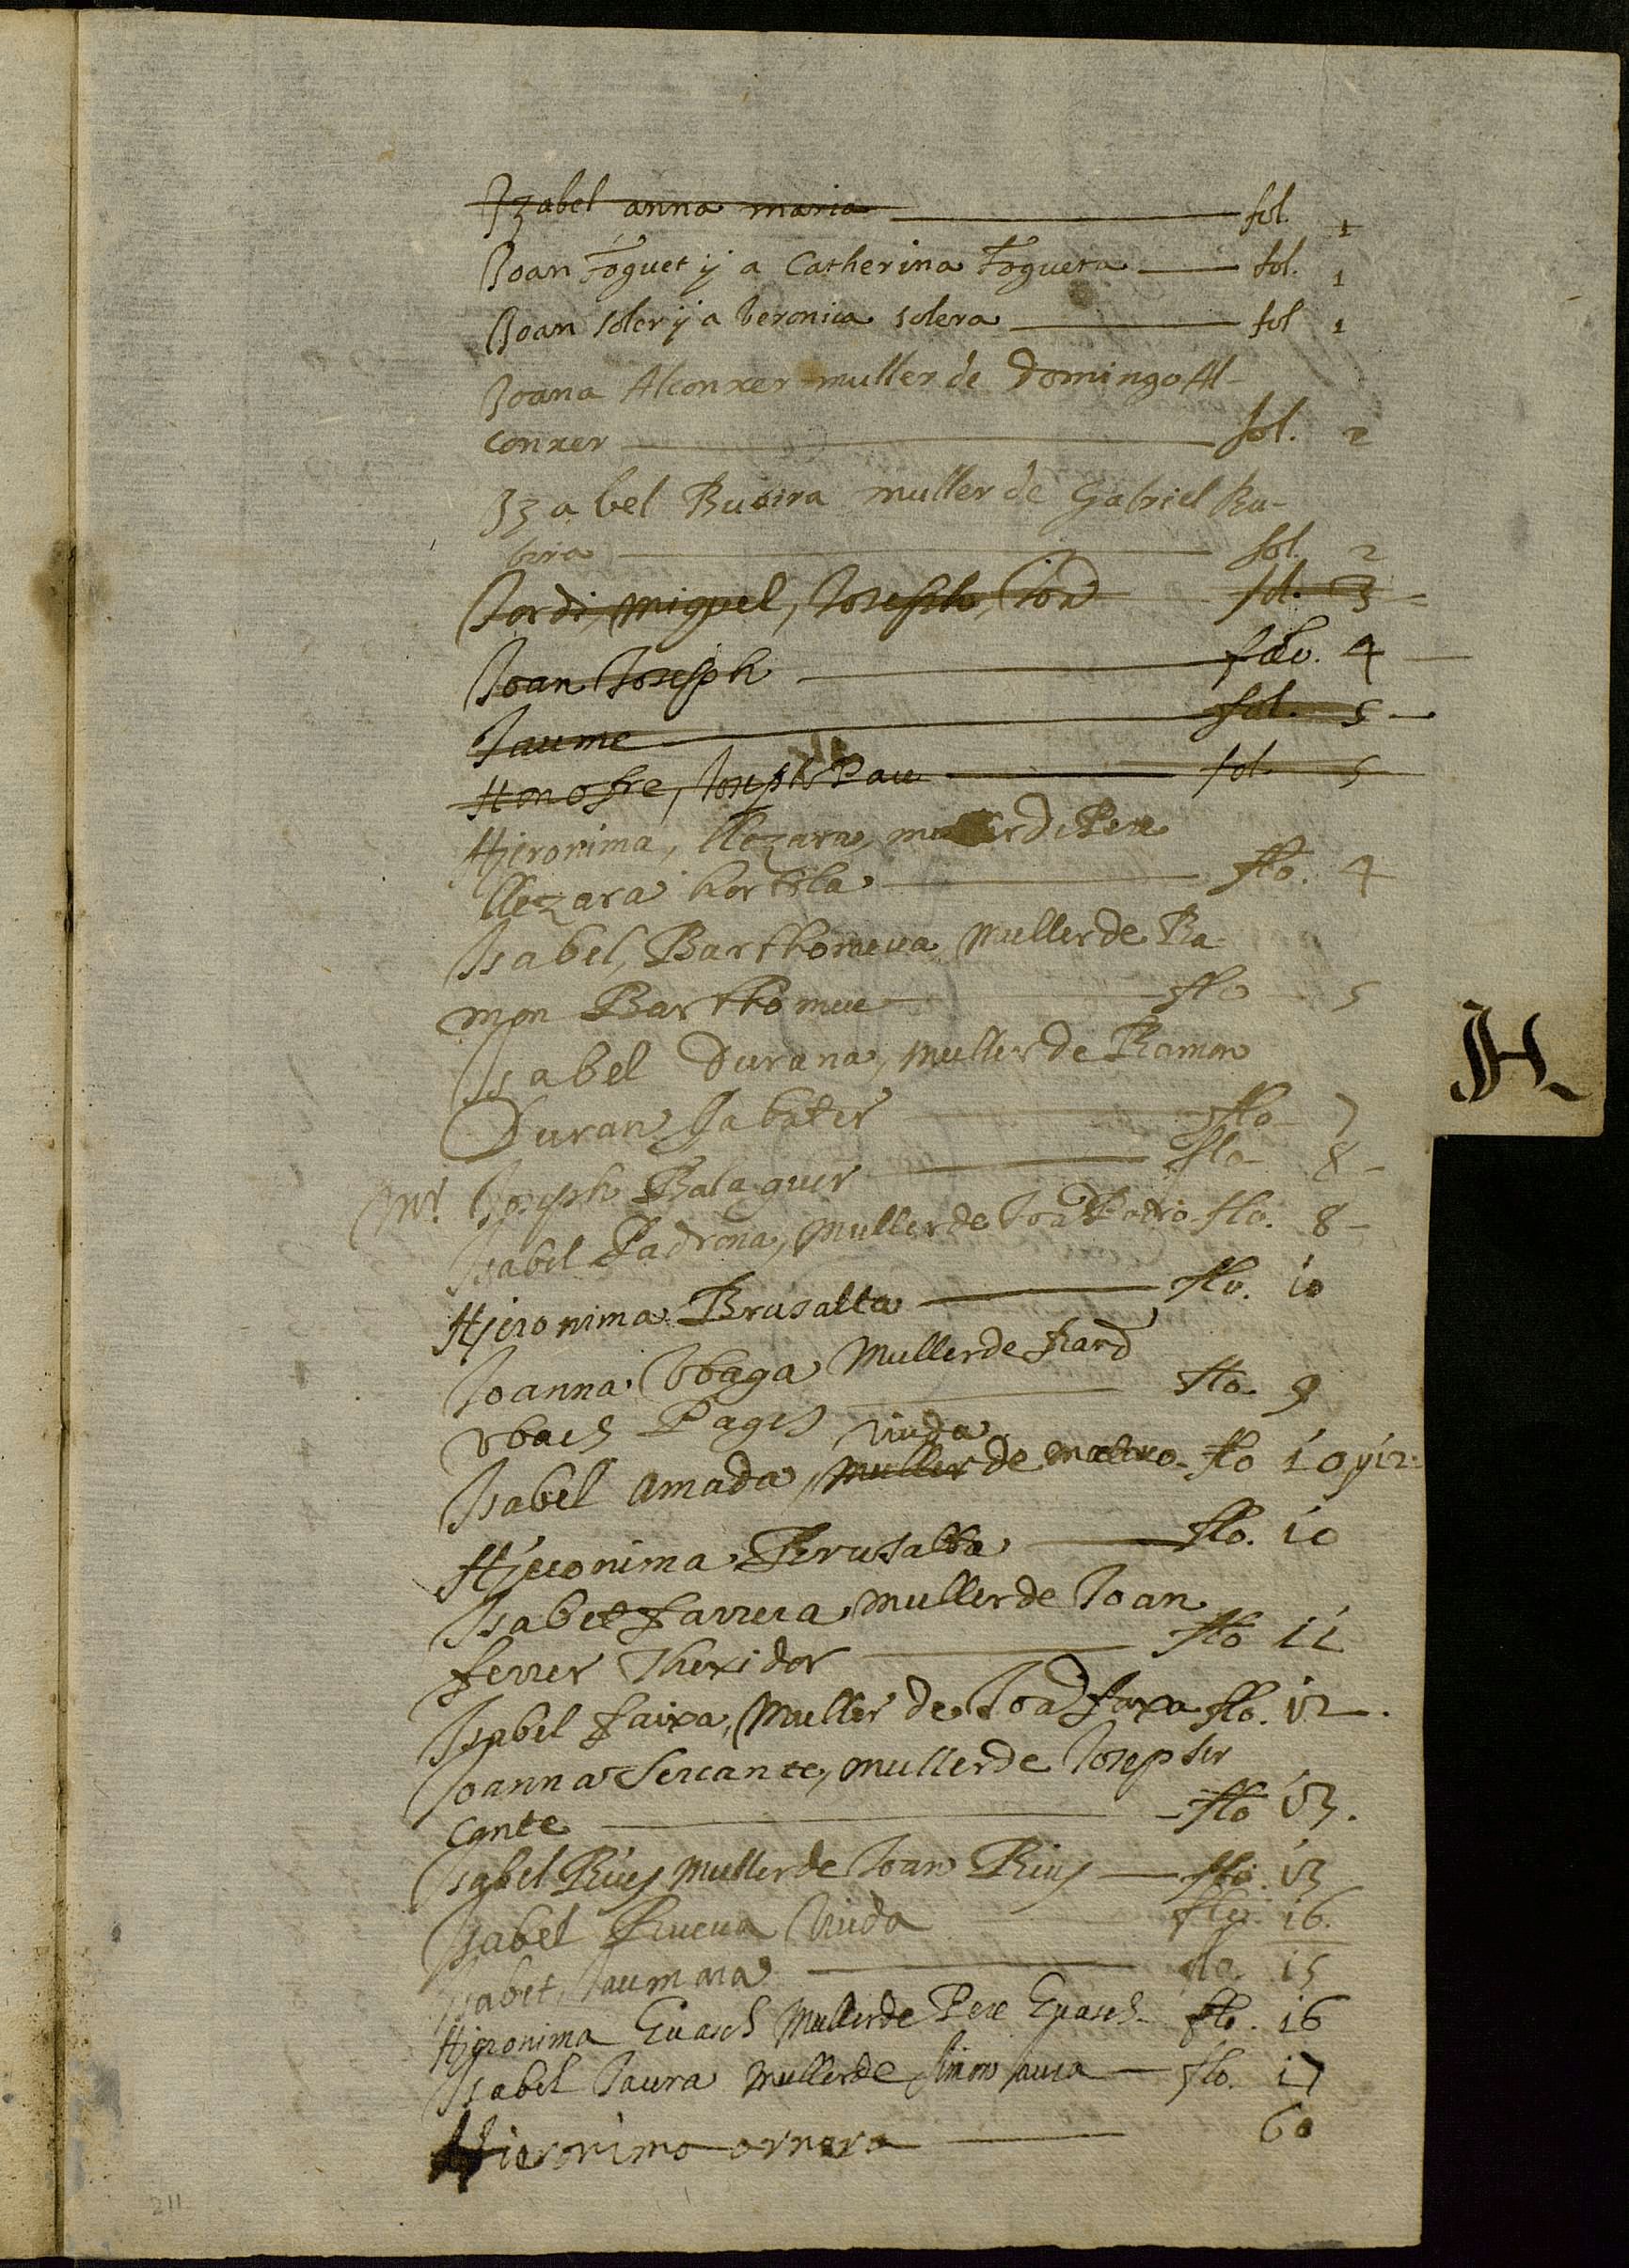 Izabel anna maria fol. 1
Joan foguet y a Catherina foguera fol. 1
Joan soler y a beronica solera fol 1
Joana Alconxer muller de Domingo Al-
conxer fol. 2
Izabel Rubira muller de Gabriel Ru-
bira fol. 2
Jordi, Miguel, Joseph, Joã fol. 3
Joan Joseph folo. 4
Jaume fol. 5
Honofre, Joseph Pau fol. 5
Hjeronima, llezara, muller de Pere
llezara hortola flo. 4
Isabel, Barthomeua Muller de Ra-
mon Barthomeu flo 5
Isabel Durana, muller de Ramon
Duran Sabater flo 7
Mr. Joseph Balaguer flo 8
Isabel Padrona, Muller de Joã Padro flo. 8
Hjeronima Brusalta flo. 10
Joanna Vbaga Muller de
Vbach Pages flo. 9
viuda
Isabel Amada, muller de flo 10 y 12.
Hjeronima Brusalta flo. 10
Isabet farrera muller de Joan
ferrer Thexidor flo 11
Isabel faixa, Muller de Joã faxa flo. 12.
Joanna Sercante, muller de Josep ser
cante flo 13.
Isabel Rius Muller de Joan Rius flo. 13
Isabel viuda flo. 16.
Isabet, Jaumara flo. 15
Hjeronima Euasch Muller de Pere Euasch flo. 16
Isabel Jaura Muller de Simon Jaura flo. 17
Hieronimo 60
H
211